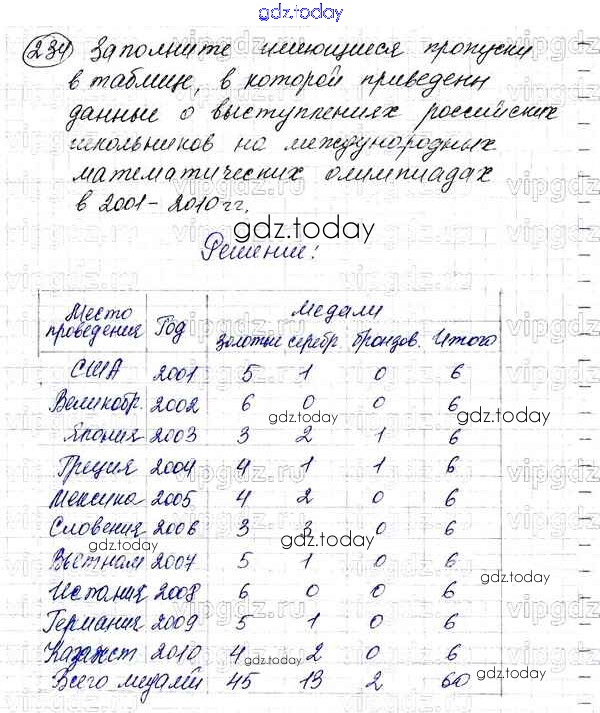 gdz.today
234 Заполните имеющиеся пропуски
в таблице, в которой приведены
данные о выступлениях российских
школьников на международных
математических олимпиадах
в 2001-2010 гг.
gdz.today
Решение:
Место проведения Год Медали
золотые серебр. бронзов. Итого
США 2001 5 1 0 6
Великобр. 2002 6 0 0 6
gdz.today gdz.today
Япония 2003 3 2 1 6
Греция 2004 4 1 1 6
Мексика 2005 4 2 0 6
Словения 2006 3 3 0 6
gdz.today gdz.today
Вьетнам 2007 5 1 0 6
gdz.today
Испания 2008 6 0 0 6
Германия 2009 5 1 0 6
Казахст 2010 4 2 0 6
gdz.today
Всего медалей 45 13 2 60
gdz.today
vipgdz.ru